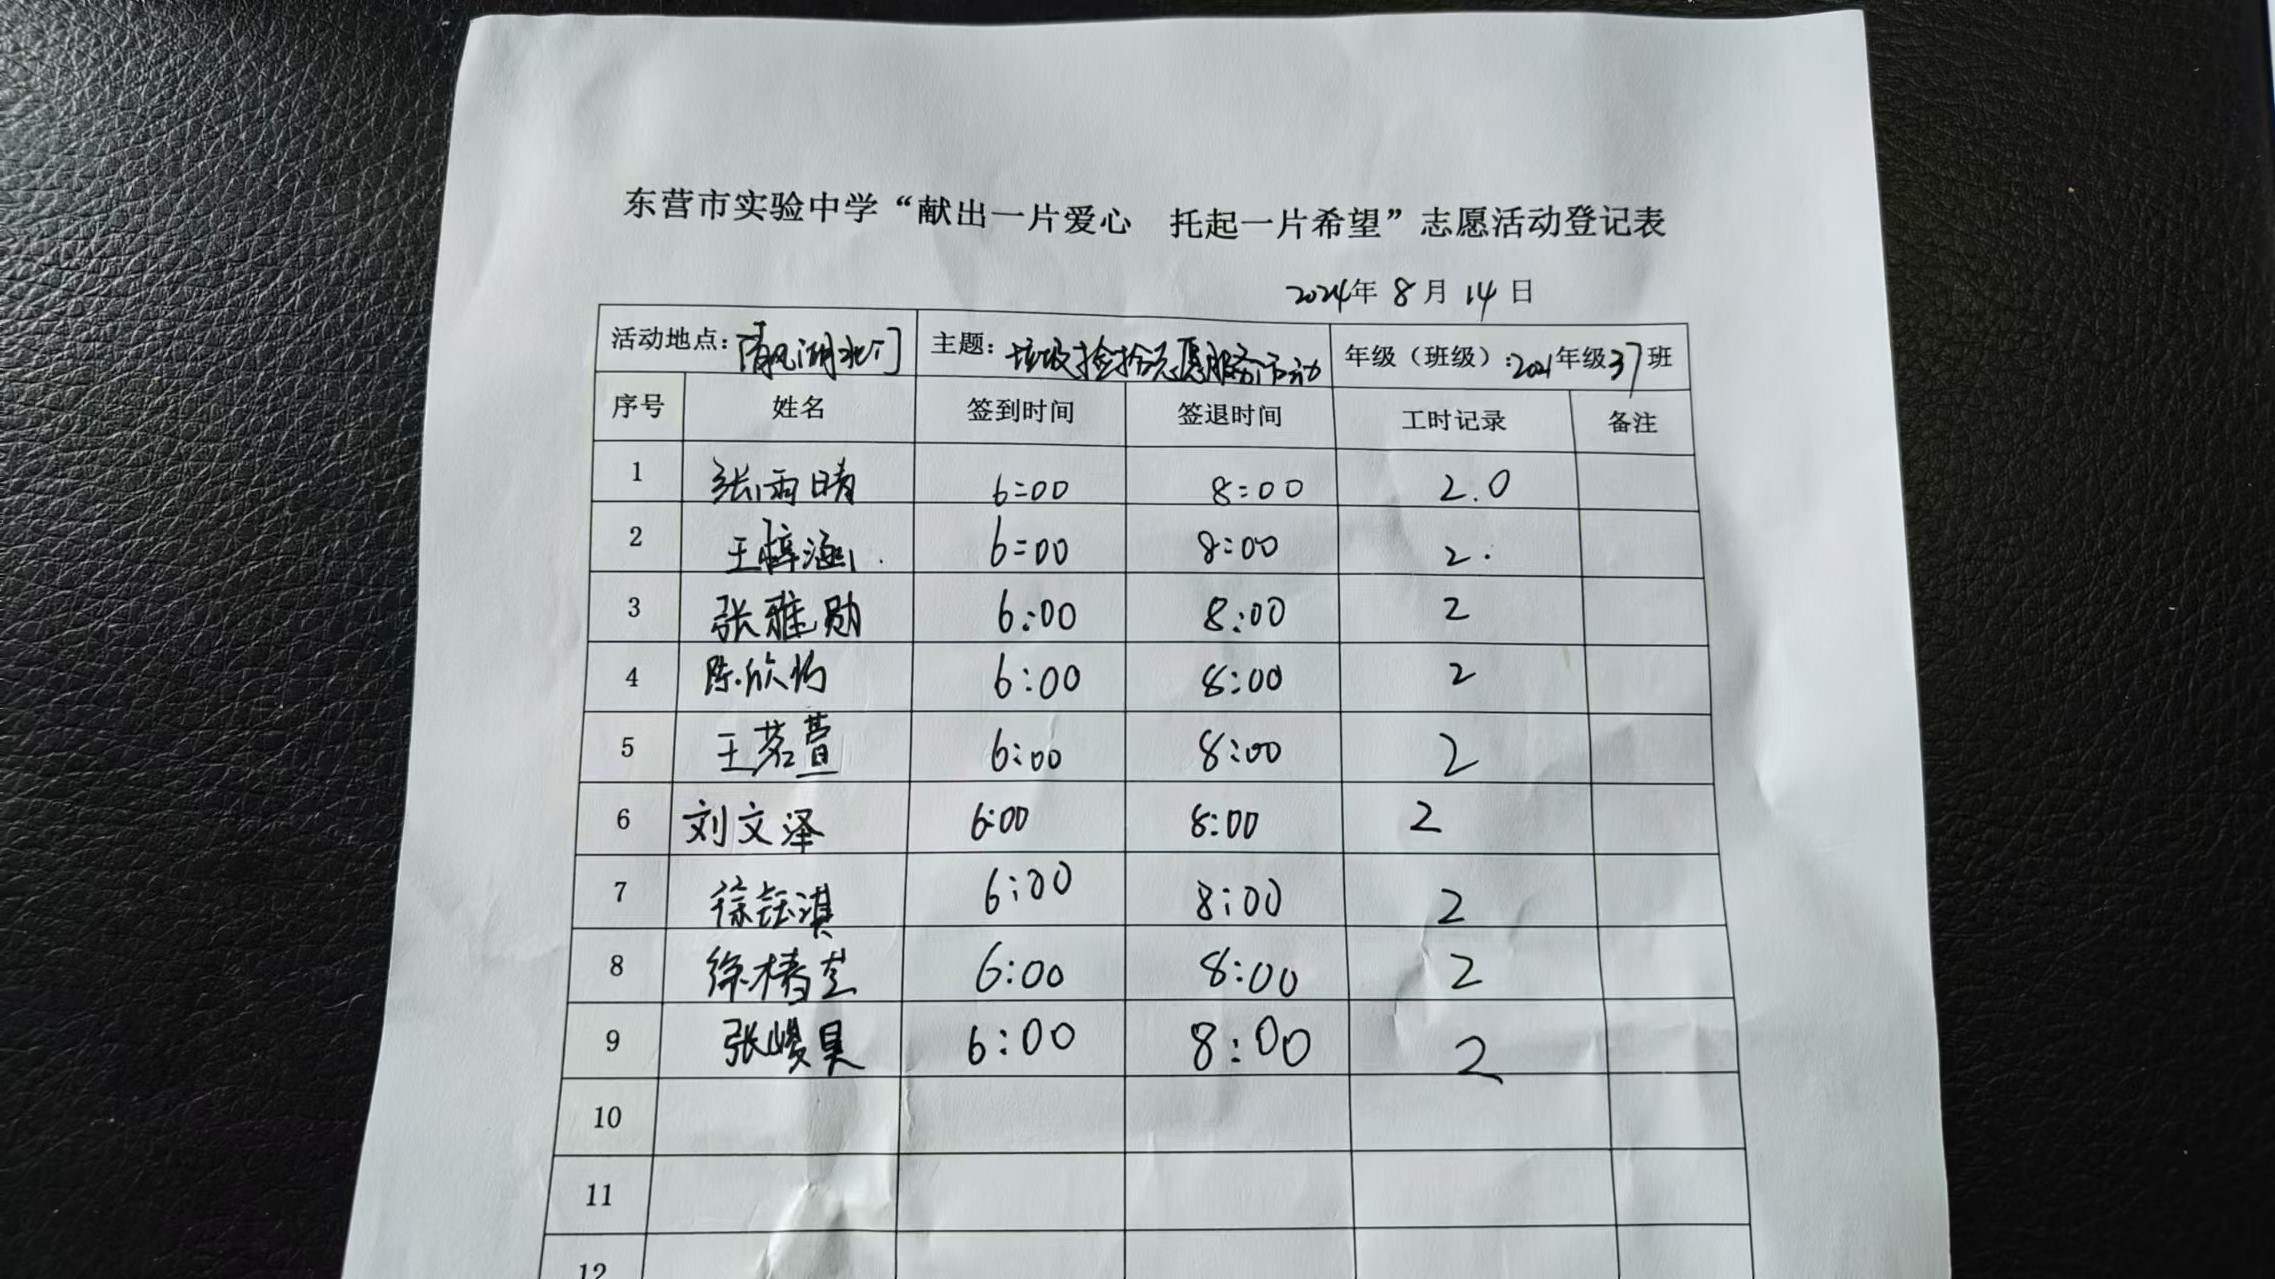 东营市实验中学“献出一片爱心 托起一片希望”志愿活动登记表
2024年 8 月 14 日
活动地点：清风湖北门 主题：垃圾捡拾志愿服务活动 年级（班级）：2021年级37班
序号 姓名 签到时间 签退时间 工时记录 备注
1 张雨晴 6:00 8:00 2.0
2 王梓涵 6:00 8:00 2.
3 张雅勋 6:00 8:00 2
4 陈欣灼 6:00 8:00 2
5 王茗萱 6:00 8:00 2
6 刘文泽 6:00 8:00 2
7 徐钰淇 6:00 8:00 2
8 徐椿芝 6:00 8:00 2
9 张峻昊 6:00 8:00 2
10
11
12